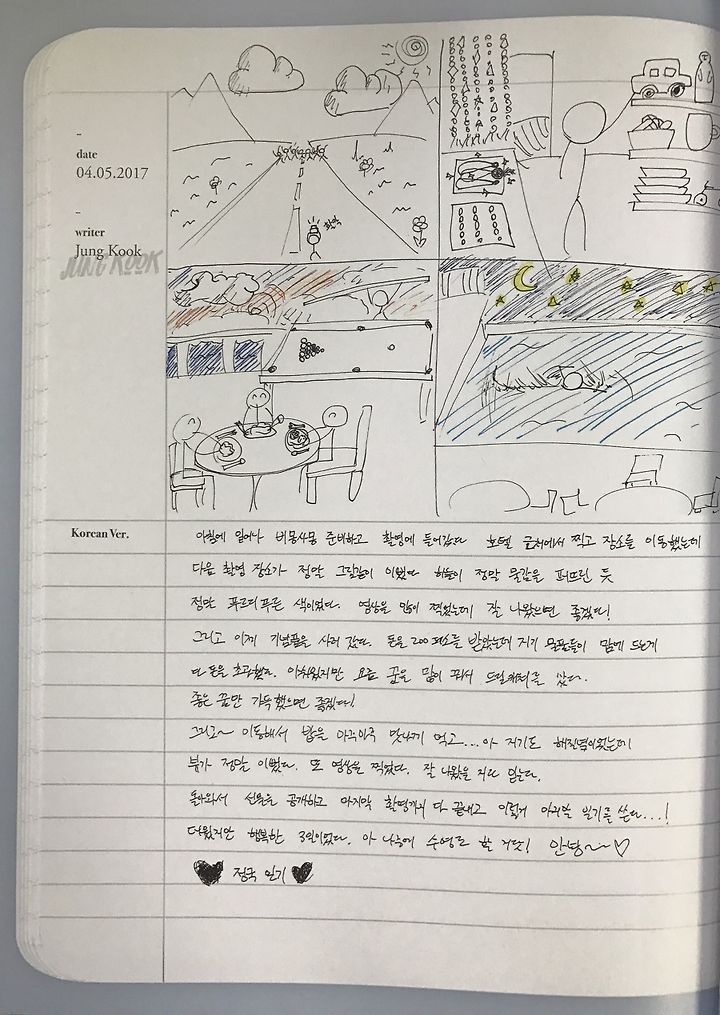 date
04.05.2017
writer
Jung Kook
JUNG KOOK
Korean Ver.
아침에 일어나 비몽사몽 준비하고 촬영에 들어갔다 호텔 근처에서 찍고 장소를 이동했는데
다음 촬영 장소가 정말 그림같이 이뻤다 하늘이 정말 물감을 퍼뜨린 듯
정말 푸르디푸른 색이었다. 영상을 많이 찍었는데 잘 나왔으면 좋겠다!
그리고 이제 기념품을 사러 갔다. 돈을 200 페소를 받았는데 거기 물품들이 맘에 드는게
다 돈을 초과했다. 아쉬웠지만 요즘 꿈을 많이 꿔서 드림캐쳐를 샀다.
좋은 꿈만 가득했으면 좋겠다!
그리고~ 이동해서 밥을 아주아주 맛나게 먹고...아 저기도 해질녘이었는데
뷰가 정말 이뻤다. 또 영상을 찍었다. 잘 나왔을 거라 믿는다.
돌아와서 선물을 공개하고 마지막 촬영까지 다 끝내고 이렇게 마지막 일기를 쓴다...!
더웠지만 행복한 3일이었다. 아 나중에 수영도 할 거닷! 안녕~~♡
♥ 정국 일기 ♥